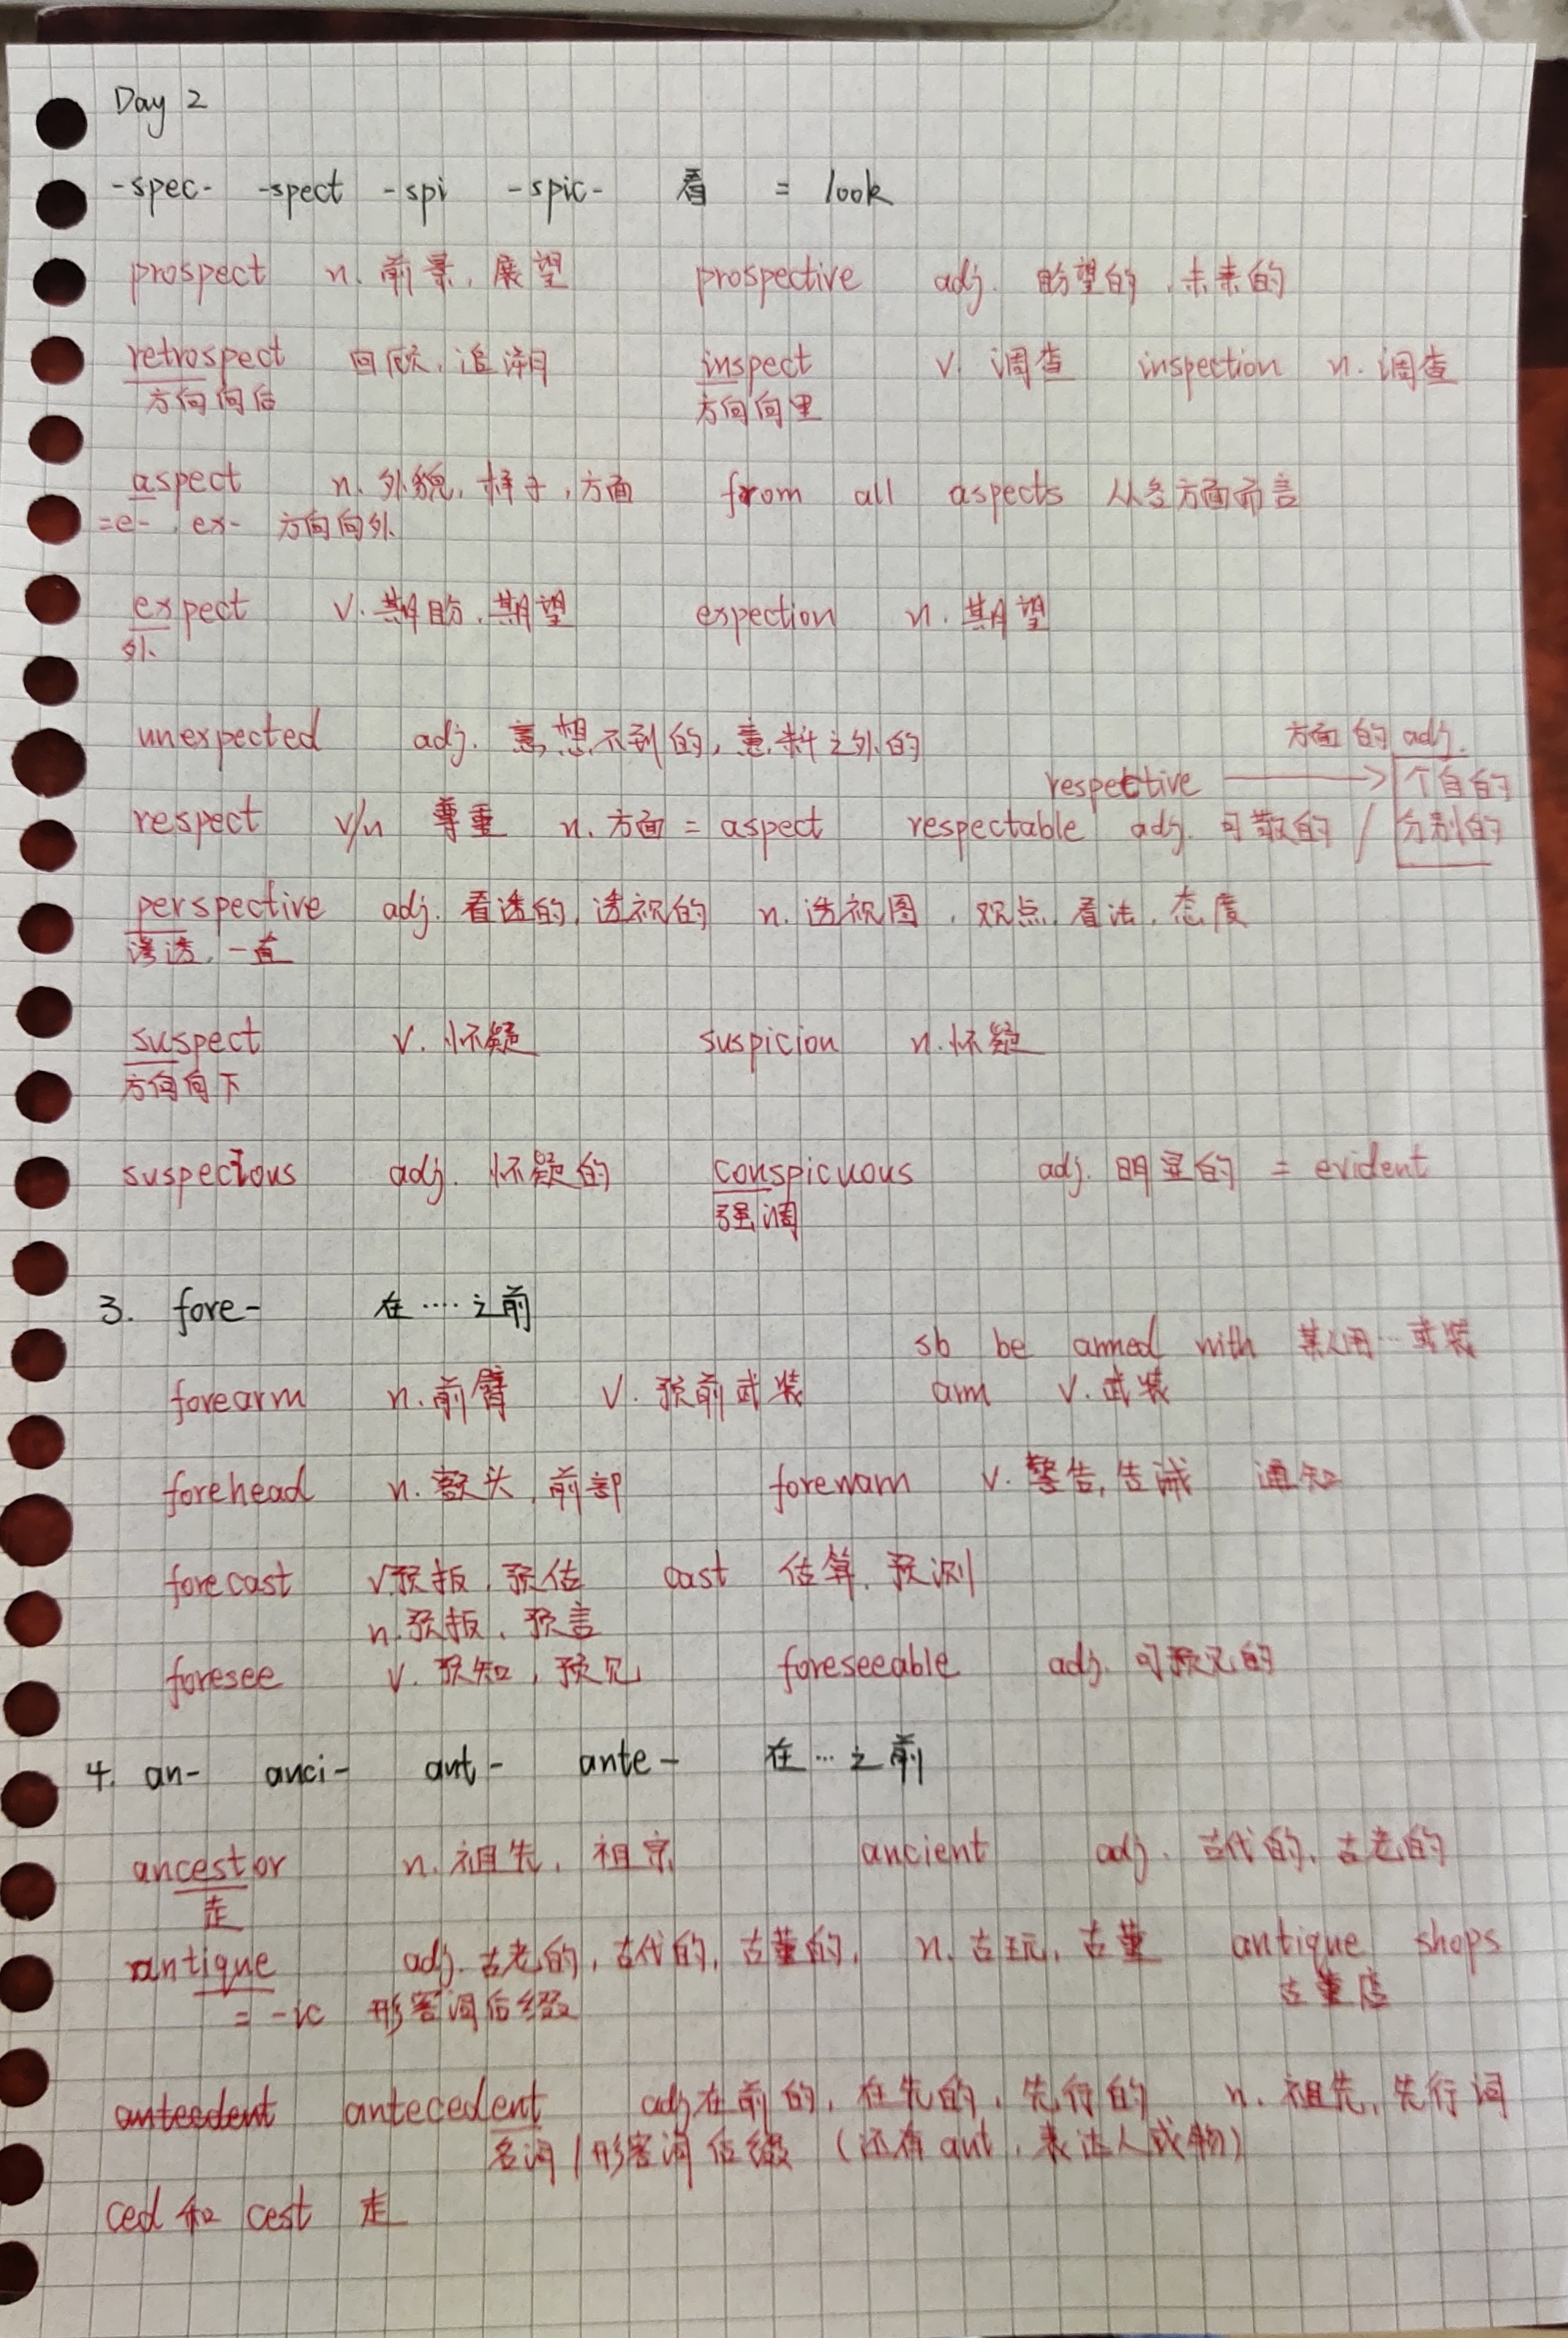 Day 2
-spec- -spect -spi -spic- 看 = look
prospect n. 前景, 展望 prospective adj. 盼望的, 未来的
retrospect 回顾, 追溯 inspect v. 调查 inspection n. 调查
方向向后 方向向里
aspect n. 外貌, 样子, 方面 from all aspects 从各方面而言
=e-, ex- 方向向外
expect v. 期盼, 期望 expection n. 期望
外
unexpected adj. 意想不到的, 意料之外的
方面的 adj.
respective → 个自的
respect v/n 尊重 n. 方面 = aspect respectable adj. 可敬的 / 分别的
perspective adj. 看透的, 透视的 n. 透视图, 观点, 看法, 态度
渗透, 一直
suspect v. 怀疑 suspicion n. 怀疑
方向向下
suspecious adj. 怀疑的 conspicuous adj. 明显的 = evident
强调
3. fore- 在····之前
sb be armed with 某人用···武装
forearm n. 前臂 v. 预前武装 arm v. 武装
forehead n. 额头, 前部 forewarn v. 警告, 告诫 通知
forecast v. 预报, 预估 cast 估算, 预测
n. 预报, 预言
foresee v. 预知, 预见 foreseeable adj. 可预见的
4. an- anci- ant- ante- 在···之前
ancestor n. 祖先, 祖宗 ancient adj. 古代的, 古老的
走
antique adj. 古老的, 古代的, 古董的, n. 古玩, 古董 antique shops
= -ic 形容词后缀 古董店
anteedent antecedent adj. 在前的, 在先的, 先行的 n. 祖先, 先行词
名词/形容词后缀 (还有ant, 表达人或物)
ced 和 cest 走